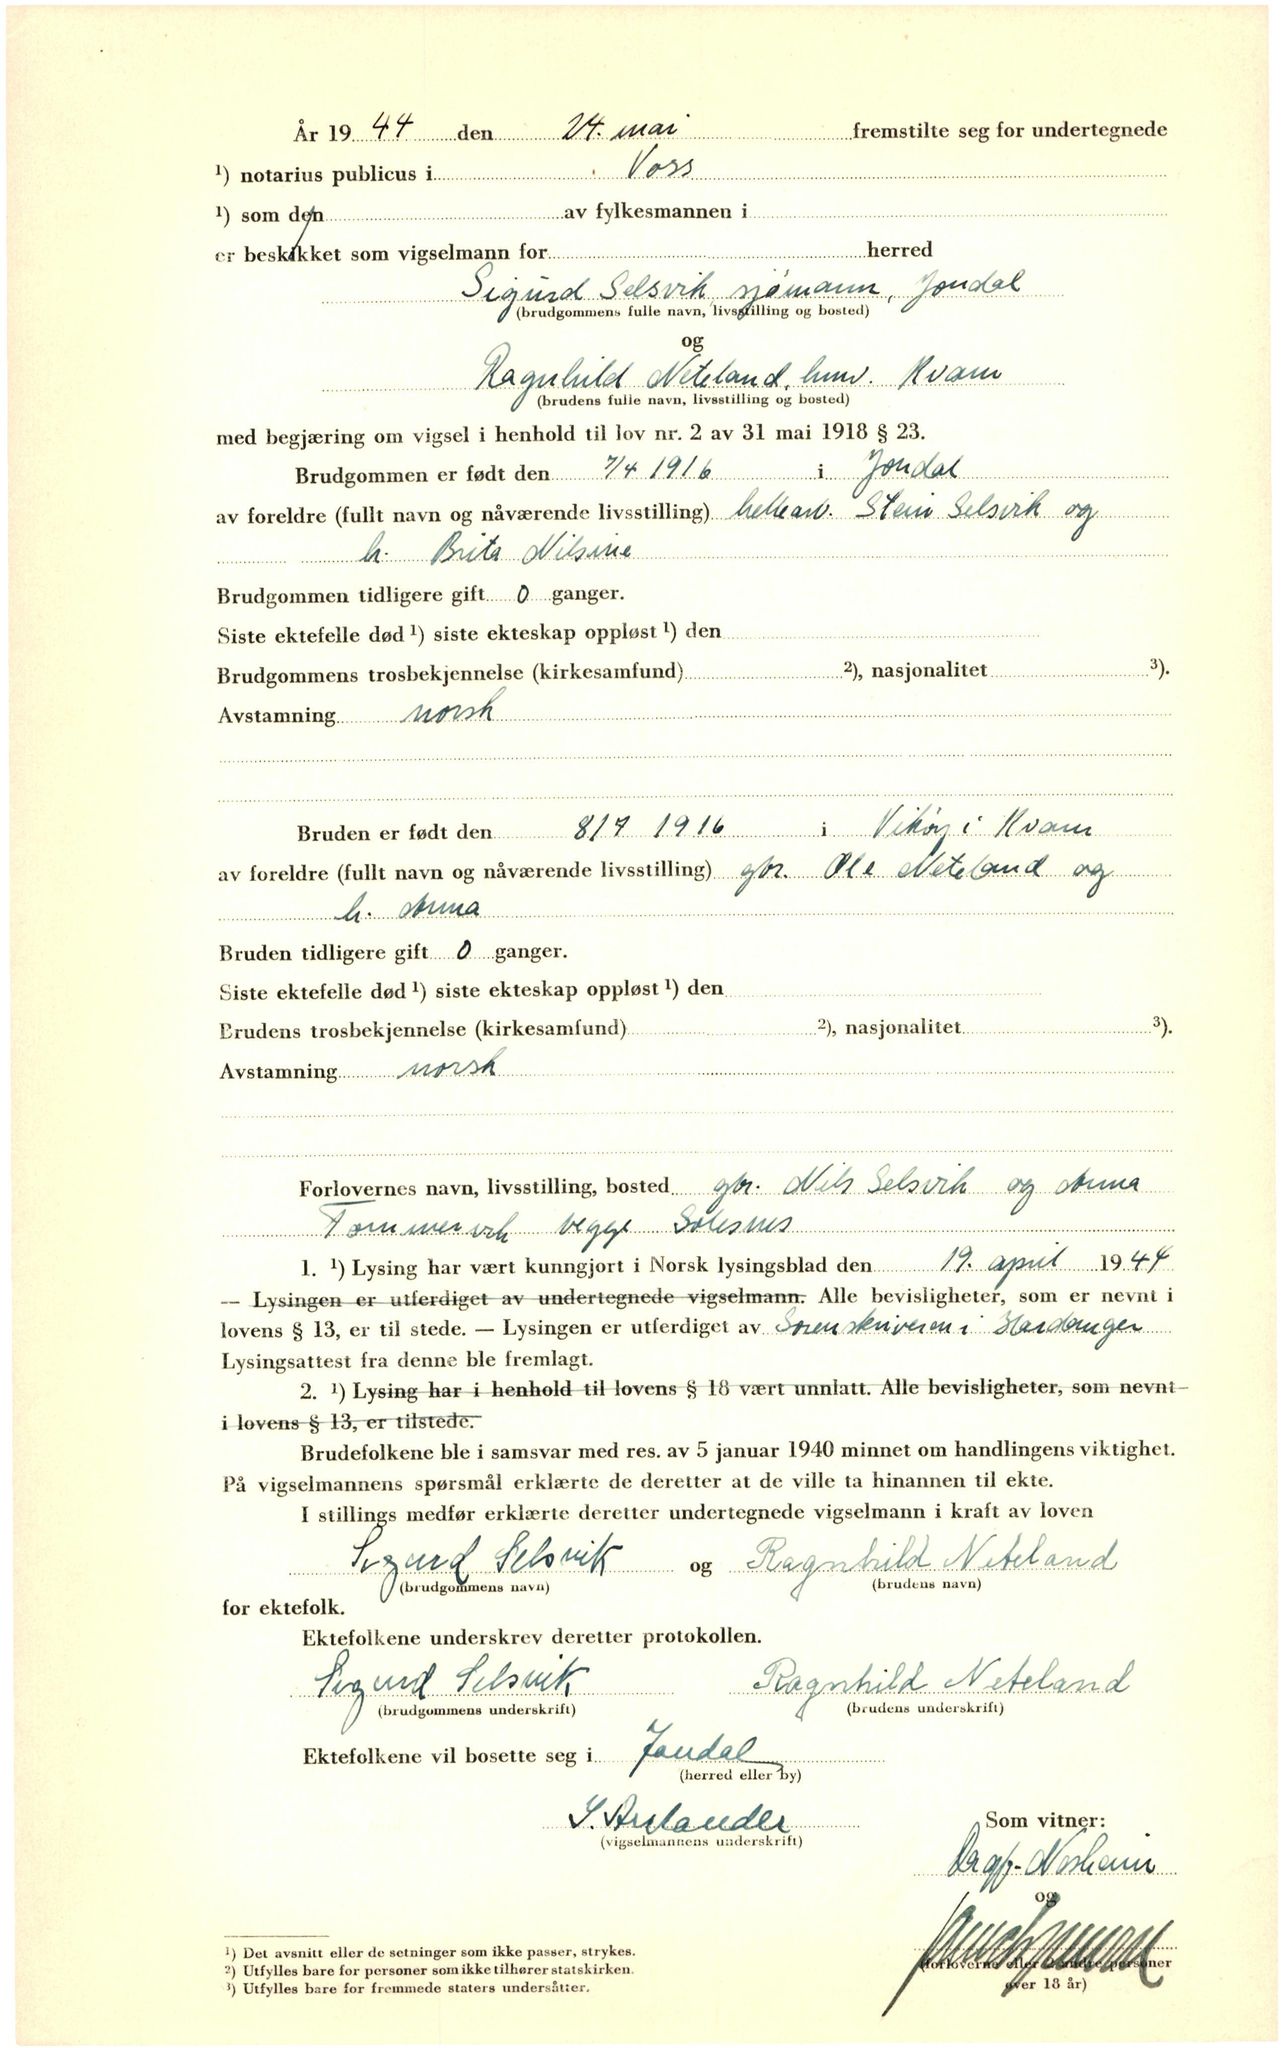 År 19 44 den 24. mai fremstilte seg for undertegnede
¹) notarius publicus i Voss
¹) som den av fylkesmannen i
er beskikket som vigselmann for herred
Sigurd Selsvik, sjømann, Jondal
(brudgommens fulle navn, livsstilling og bosted)
og
Ragnhild Neteland, hmv. Kvam
(brudens fulle navn, livsstilling og bosted)
med begjæring om vigsel i henhold til lov nr. 2 av 31 mai 1918 § 23.
Brudgommen er født den 7/4 1916 i Jondal
av foreldre (fullt navn og nåværende livsstilling) hellearb. Stein Selsvik og
h. Brita Nilsine
Brudgommen tidligere gift 0 ganger.
Siste ektefelle død ¹) siste ekteskap oppløst ¹) den
Brudgommens trosbekjennelse (kirkesamfund) ²), nasjonalitet ³).
Avstamning norsk
Bruden er født den 8/7 1916 i Vikøy i Kvam
av foreldre (fullt navn og nåværende livsstilling) gbr. Ole Neteland og
h. Anna
Bruden tidligere gift 0 ganger.
Siste ektefelle død ¹) siste ekteskap oppløst ¹) den
Brudens trosbekjennelse (kirkesamfund) ²), nasjonalitet ³).
Avstamning norsk
Forlovernes navn, livsstilling, bosted gbr. Nils Selsvik og Anna
Tommervik begge Solesnes
1. ¹) Lysing har vært kunngjort i Norsk lysingsblad den 19. april 1944
— Lysingen er utferdiget av undertegnede vigselmann. Alle bevisligheter, som er nevnt i
lovens § 13, er til stede. — Lysingen er utferdiget av Sorenskriveren i Hardanger
Lysingsattest fra denne ble fremlagt.
2. ¹) Lysing har i henhold til lovens § 18 vært unnlatt. Alle bevisligheter, som nevnt
i lovens § 13, er tilstede.
Brudefolkene ble i samsvar med res. av 5 januar 1940 minnet om handlingens viktighet.
På vigselmannens spørsmål erklærte de deretter at de ville ta hinannen til ekte.
I stillings medfør erklærte deretter undertegnede vigselmann i kraft av loven
Sigurd Selsvik og Ragnhild Neteland
(brudgommens navn) (brudens navn)
for ektefolk.
Ektefolkene underskrev deretter protokollen.
Sigurd Selsvik Ragnhild Neteland
(brudgommens underskrift) (brudens underskrift)
Ektefolkene vil bosette seg i Jondal
(herred eller by)
Som vitner:
(vigselmannens underskrift)
og
(forloverne eller 2 andre personer
over 18 år)
¹) Det avsnitt eller de setninger som ikke passer, strykes.
²) Utfylles bare for personer som ikke tilhører statskirken.
³) Utfylles bare for fremmede staters undersåtter.